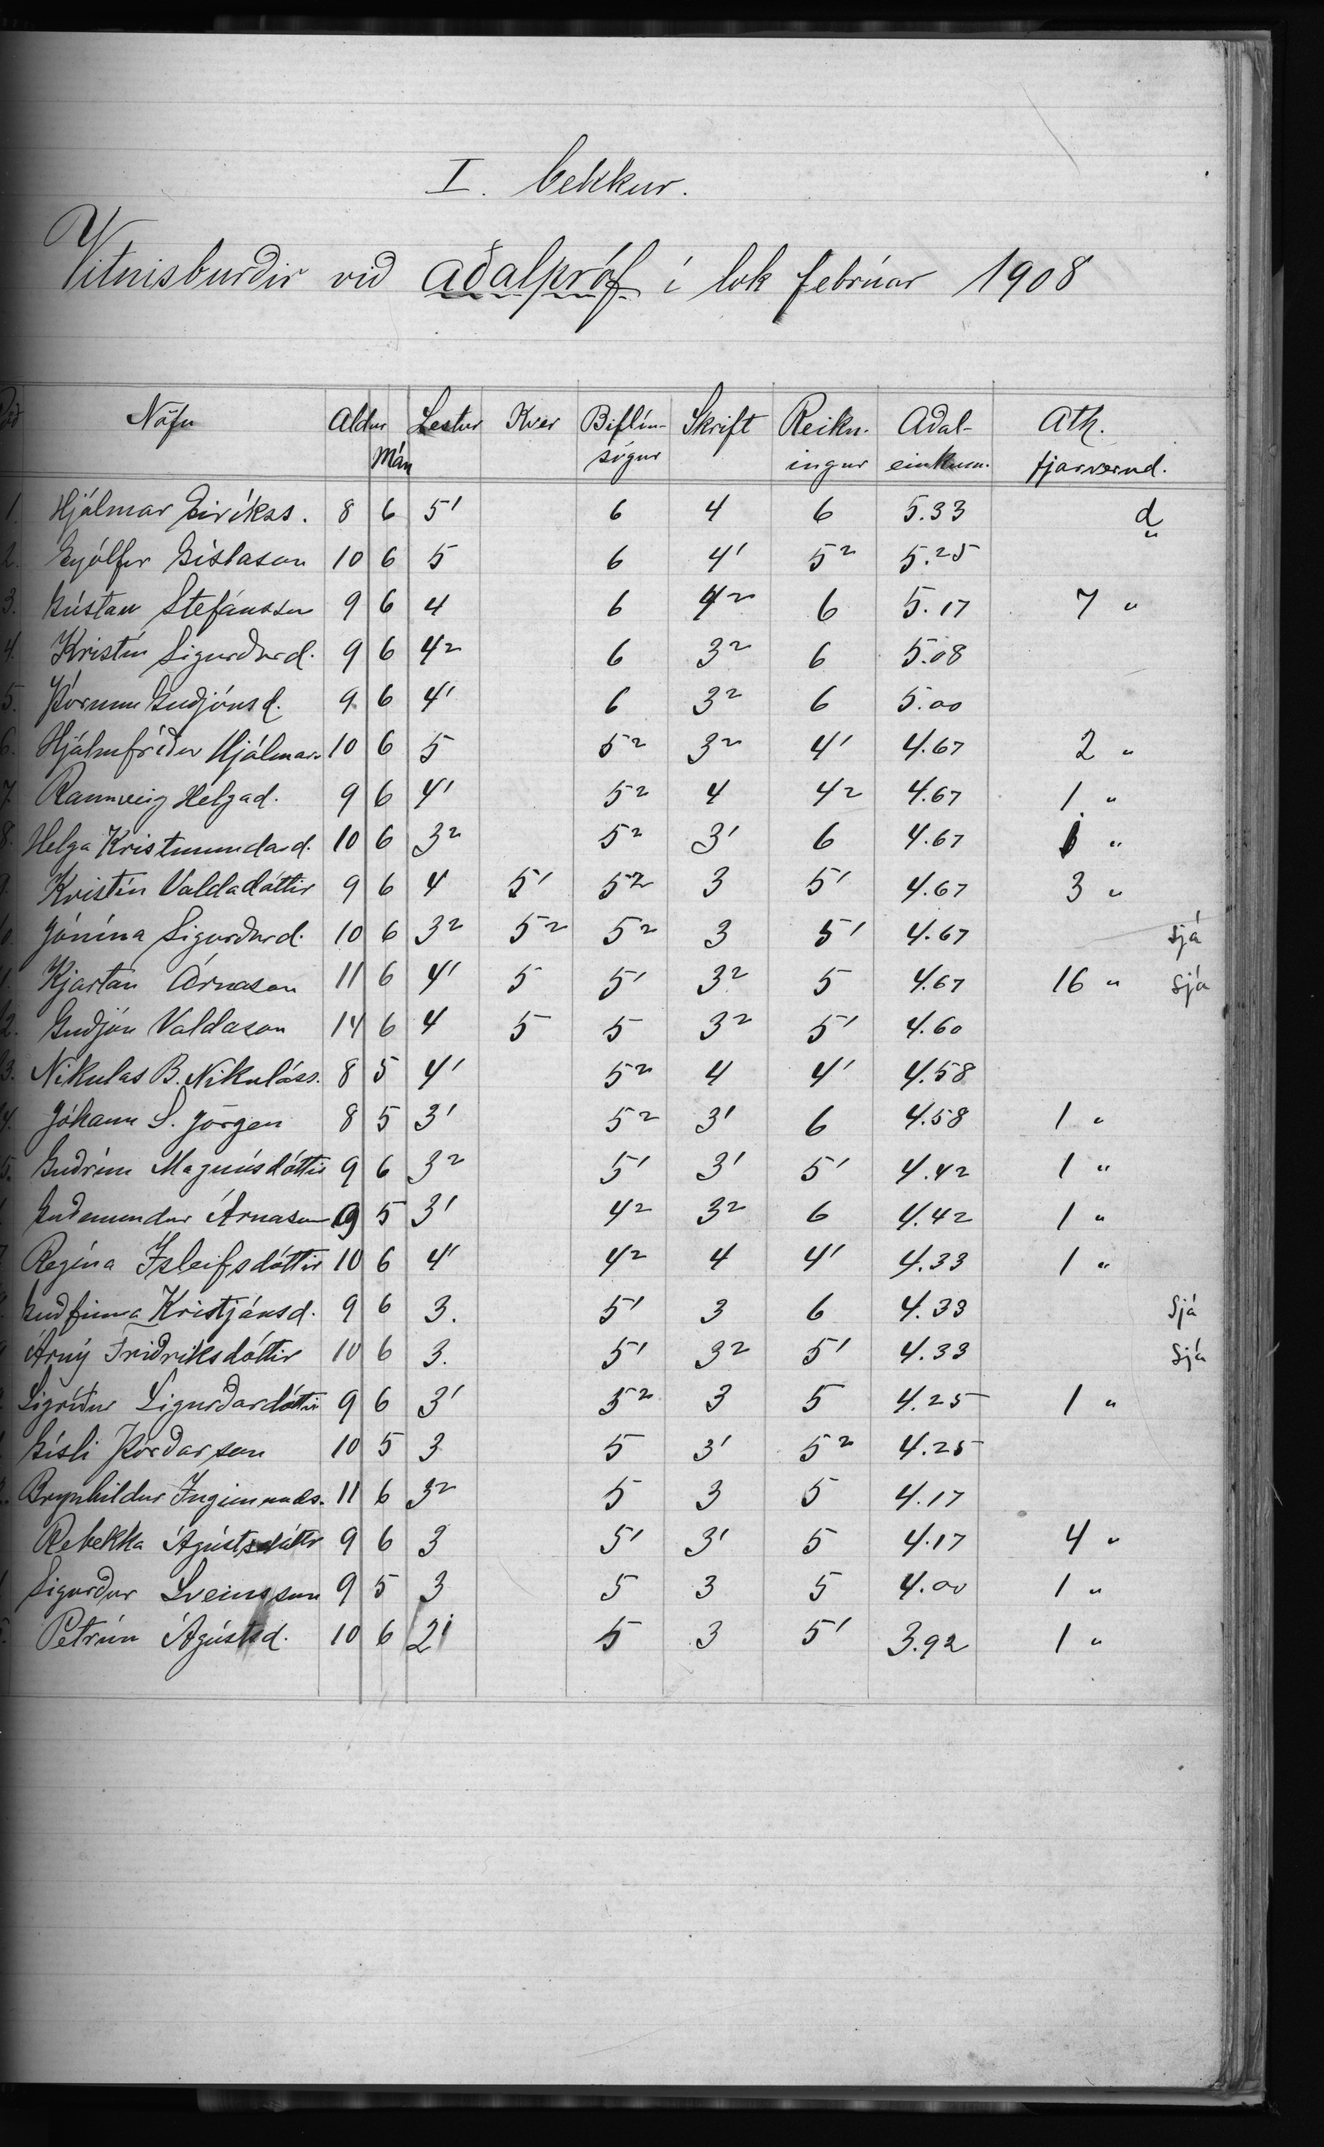 I. bekkur.
Vitnisburðir við aðalpróf í lok febrúar 1908
Nöfn Aldur Mán Lestur Kver Biflíusögur Skrift Reikningur Aðaleinkunn. Ath. fjarverud.
1. Hjálmar Eiríkss. 8 6 5' 6 4 6 5.33 d "
2. Eyjólfur Gíslason 10 6 5 6 4' 5² 5.25
3. Gústav Stefánsson 9 6 4 6 4² 6 5.17 7 "
4. Kristín Sigurðard. 9 6 4² 6 3² 6 5.08
5. Þórunn Guðjónsd. 9 6 4' 6 3² 6 5.00
6. Hjálmfríður Hjálmars 10 6 5 5² 3² 4' 4.67 2 "
7. Rannveig Helgad. 9 6 4' 5² 4 4² 4.67 1 "
8. Helga Kristmundard. 10 6 3² 5² 3' 6 4.67 1 "
9. Kristín Valdadóttir 9 6 4 5' 5² 3 5' 4.67 3 "
0. Jónína Sigurðard. 10 6 3² 5² 5² 3 5' 4.67 Sjá
1. Kjartan Árnason 11 6 4' 5 5' 3² 5 4.67 16 " Sjá
2. Guðjón Valdason 14 6 4 5 5 3² 5' 4.60
3. Nikulas B. Nikuláss. 8 5 4' 5² 4 4' 4.58
4. Jóhann S. Jörgen 8 5 3' 5² 3' 6 4.58 1 "
5. Guðrún Magnúsdóttir 9 6 3² 5' 3' 5' 4.42 1 "
Guðmundur Árnason 9 5 3' 4² 3² 6 4.42 1 "
Regína Ísleifsdóttir 10 6 4' 4² 4 4' 4.33 1 "
Guðfinna Kristjánsd. 9 6 3. 5' 3 6 4.33 Sjá
Árný Friðriksdóttir 10 6 3. 5' 3² 5' 4.33 Sjá
Sigríður Sigurðardóttir 9 6 3' 5² 3 5 4.25 1 "
Gísli Þórðarson 10 5 3 5 3' 5² 4.25
Brynhildur Ingimunds. 11 6 3² 5 3 5 4.17
Rebekka Ágústsdóttir 9 6 3 5' 3' 5 4.17 4 "
Sigurður Sveinsson 9 5 3 5 3 5 4.00 1 "
Petrún Ágústsd. 10 6 2' 5 3 5' 3.92 1 "